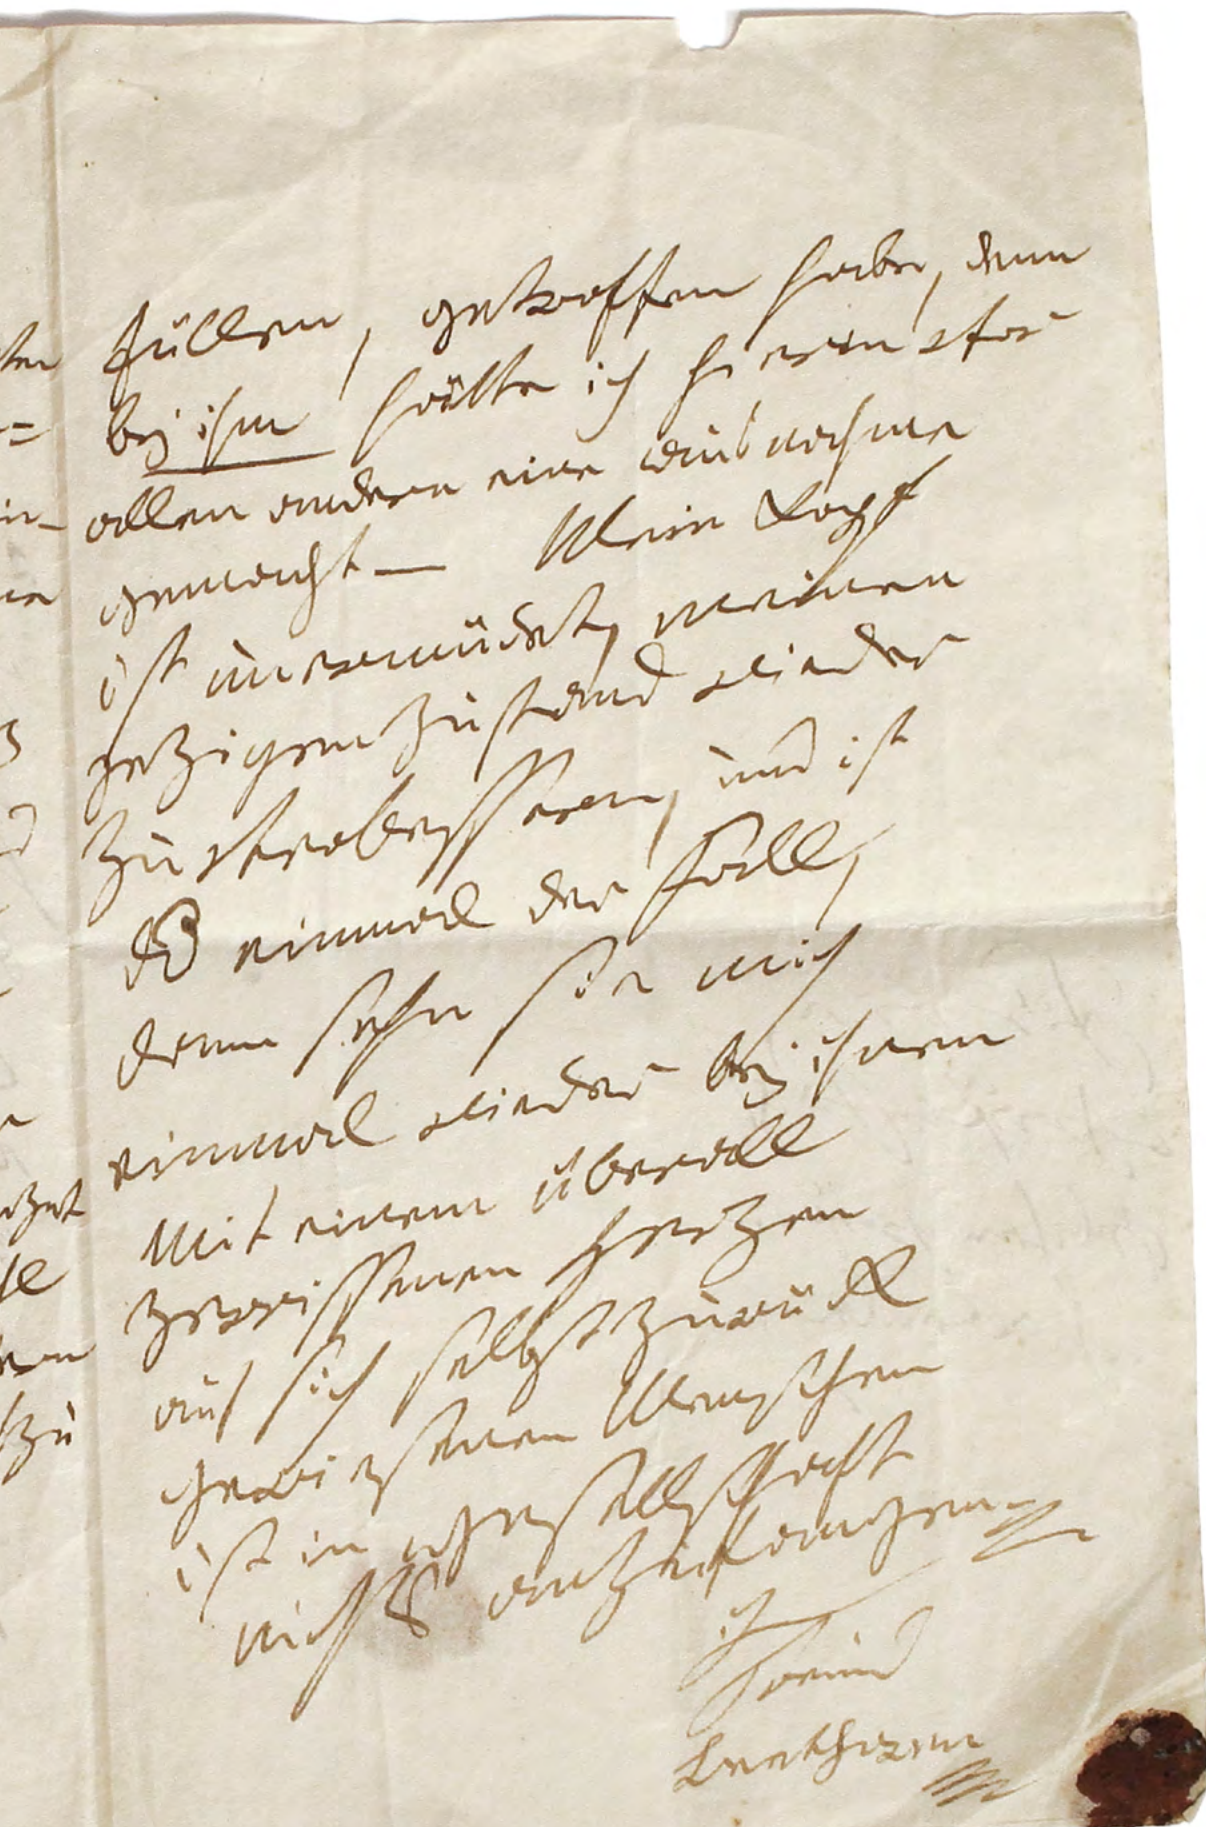 füllen, getroffen habe, denn
bej ihm hätte ich hierin vor
allen andern eine ausnahme
gemacht — Mein Kopf
ist unermüdet, meinen
jezigen zustand wieder
zu verbessern, und ist
das einmal der Fall,
denn sehn sie mich
einmal wieder bej ihnen
Mit einem überall
zerrissenen Herzen
auf sich selbst zurück
gewiesenen Menschen
ist in gesellschaft
nichts anzufangen —
ihr
Freund
Beethowen